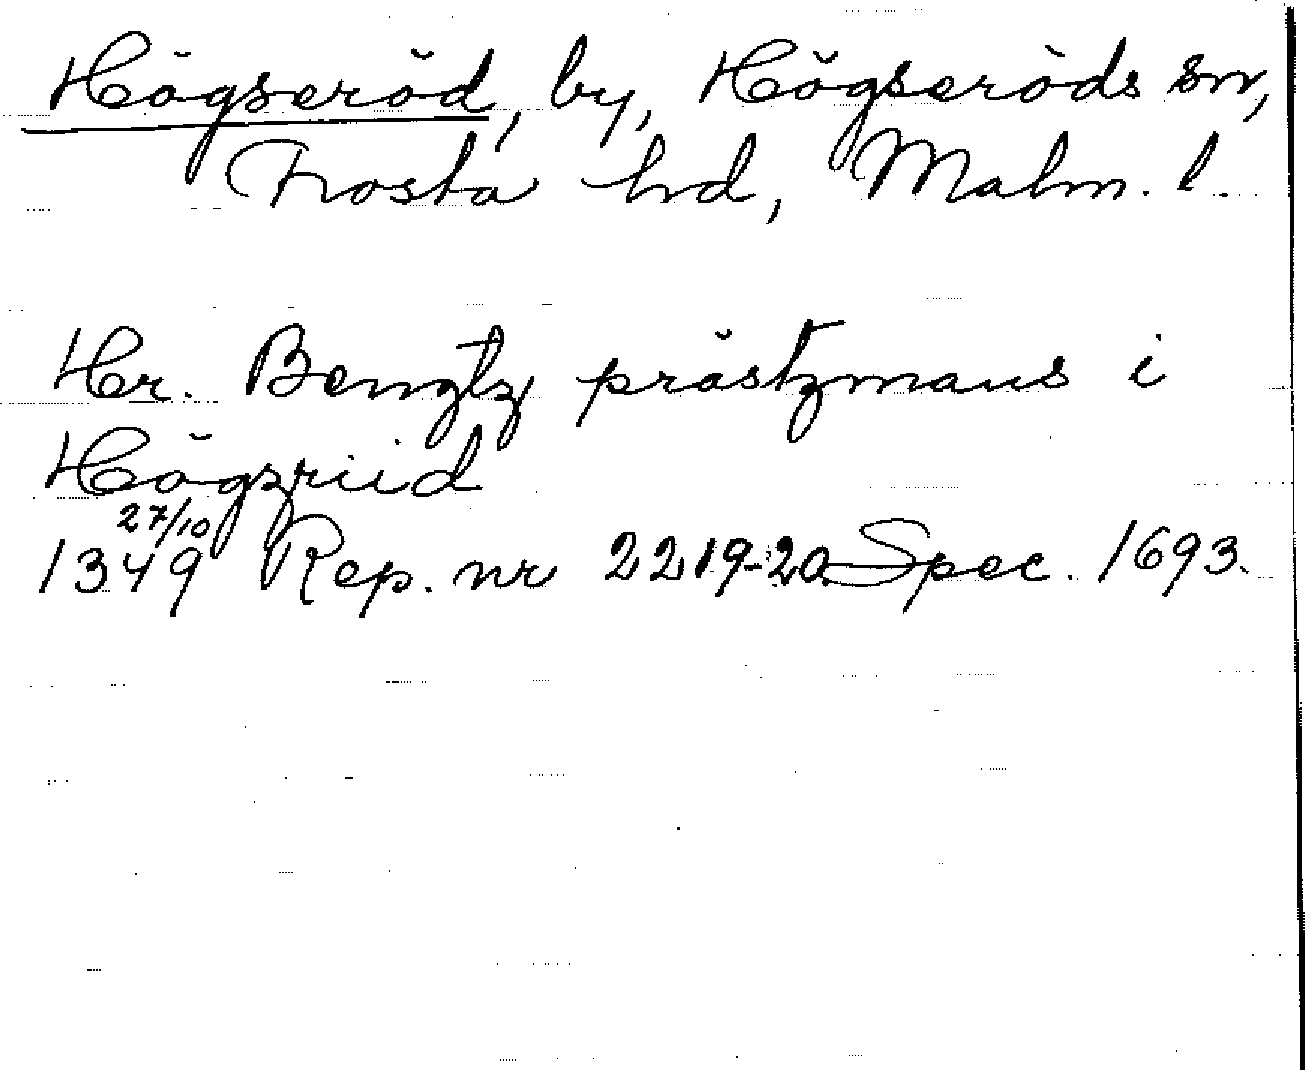 Högseröd, by, Högseröds sn,
Frosta hd, Malm. l.
Hr. Bengtz prästzmans i
Högzriid
27/10
1349 Rep. nr 2219-20 Spec. 1693.